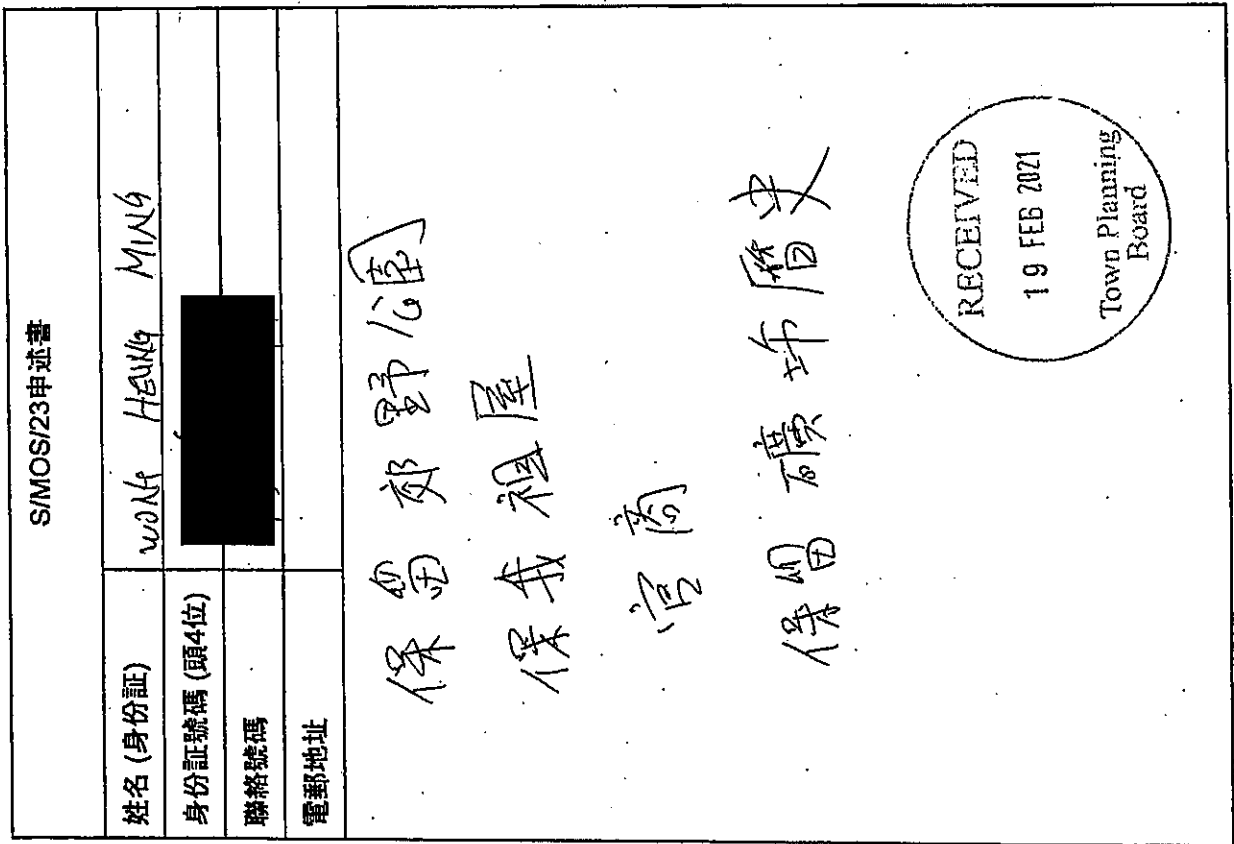 S/MOS/23申述書
姓名 (身份証) WONG HEUNG MING
身份証號碼 (頭4位)
聯絡號碼
電郵地址
保留郊野公園
保我祖屋
官商
保留礦坊歷史
RECEIVED
19 FEB 2021
Town Planning
Board